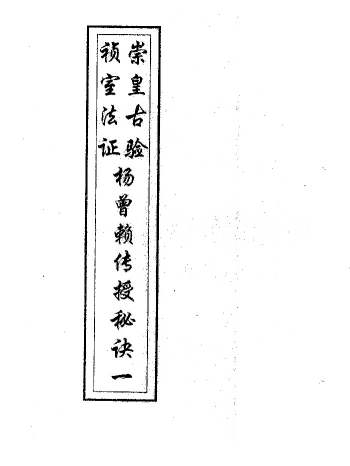 崇皇古验
祯室法证
杨曾赖传授秘诀一